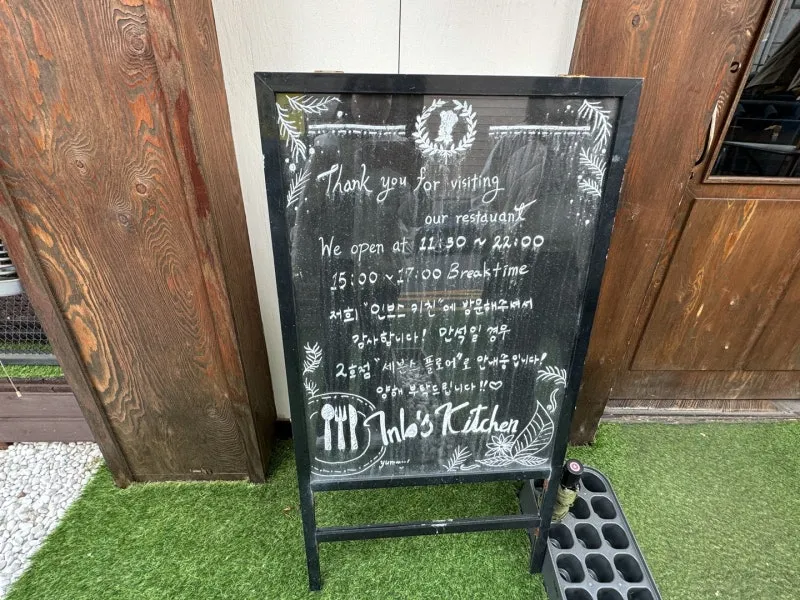 Thank you for visiting
our restauant
We open at 11:30 ~ 22:00
15:00 ~ 17:00 Breaktime
저희 "인브스 키친"에 방문해주셔서
감사합니다! 만석일 경우
2호점 "세븐스 플로어"로 안내중입니다!
양해 부탁드립니다!!♡
Inb's Kitchen
yum